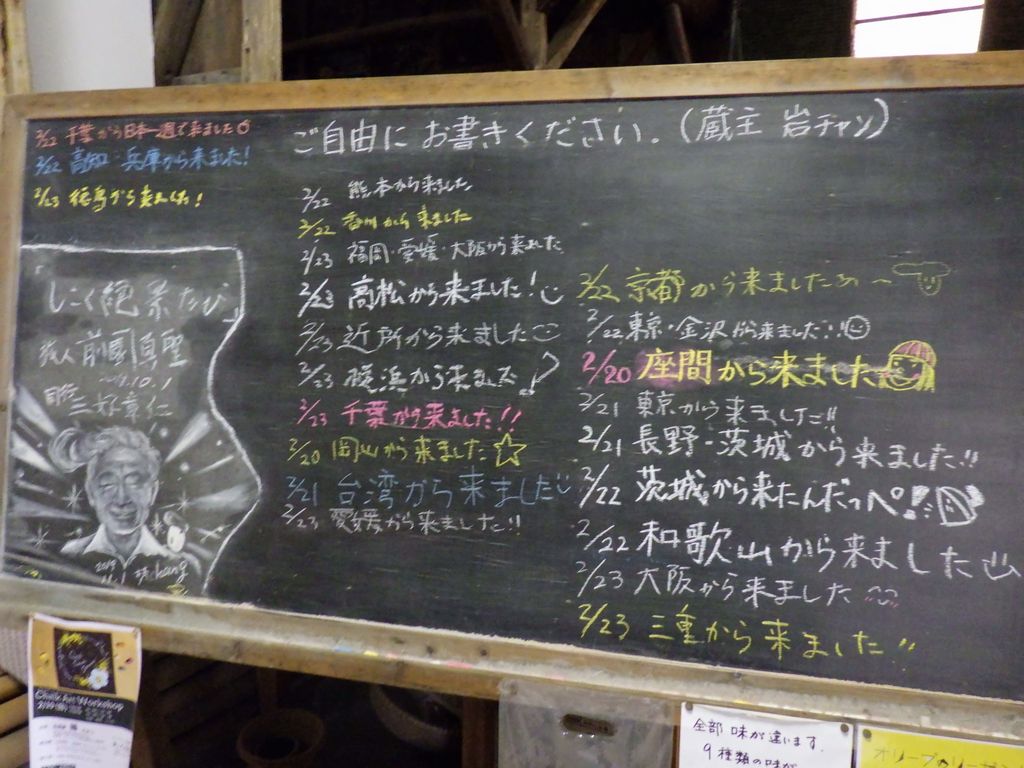 ご自由にお書きください。(蔵主 岩チャン)
2/22 千葉から日本一週で来ました
2/22 高知・兵庫から来ました!
2/23 徳島から来ました!
しこく絶景たび
旅人 前園真聖
三好章仁
2019
2/22 熊本から来ました
2/22 香川から来ました
2/23 福岡・愛媛・大阪から来ました
2/23 高松から来ました!
2/23 近所から来ました
2/23 横浜から来ました!
2/23 千葉から来ました!!
2/20 岡山から来ました☆
2/21 台湾から来ました
2/23 愛媛から来ました!!
2/22 京都から来ましたぁ〜
2/22 東京・金沢から来ました!!
2/20 座間から来ました
2/21 東京から来ました!!
2/21 長野・茨城から来ました!!
2/22 茨城から来たんだっぺ!
2/22 和歌山から来ました
2/23 大阪から来ました
2/23 三重から来ました!!
Chalk Art Workshop
全部 味が違います。
9種類の味が